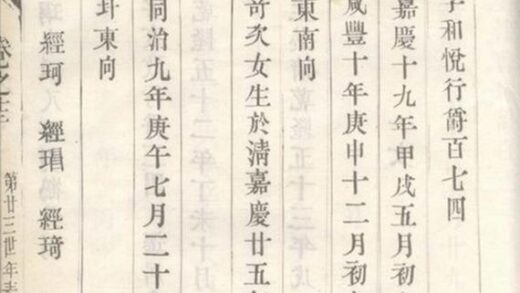 字和悅行爵百七四
嘉慶十九年甲戌五月初
咸豐十年庚申十二月初
東南向
次女生於清嘉慶廿五年
同治九年庚午七月二十
東向
經珂 經琩 經琦
卷之
第廿三世年表